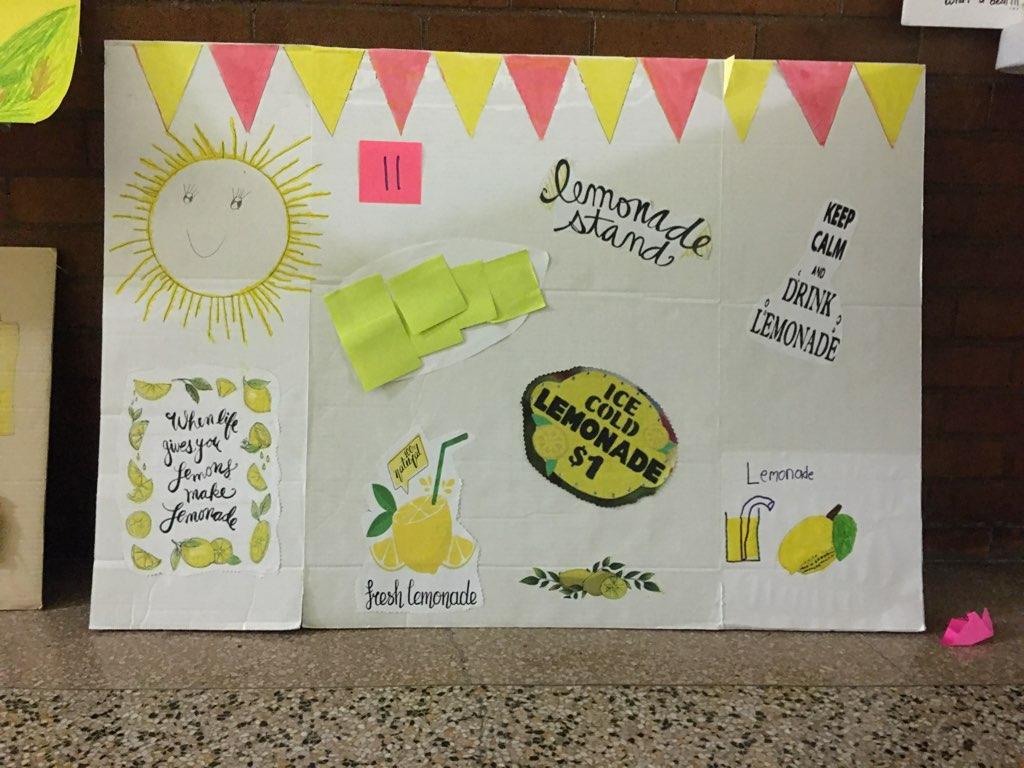 11
lemonade
stand
KEEP
CALM
AND
DRINK
LEMONADE
When life
gives you
lemons
make
Lemonade
100%
natural
fresh lemonade
ICE
COLD
LEMONADE
$1
Lemonade